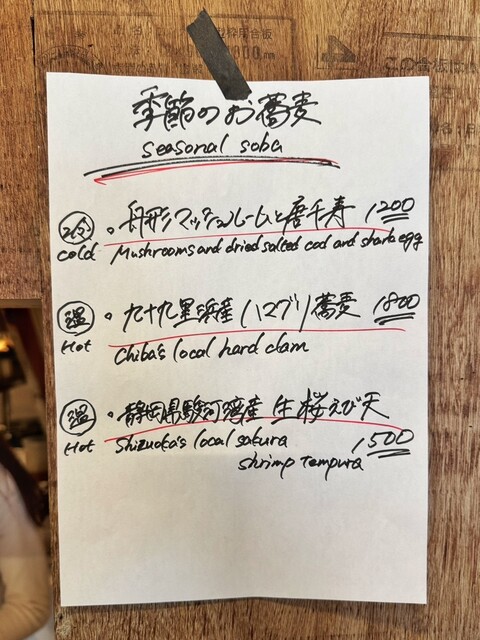 季節のお蕎麦
seasonal soba
冷 ・舟形マッシュルームと唐千寿 1200
cold Mushrooms and dried salted cod and shark egg
温 ・九十九里浜産ハマグリ蕎麦 1800
Hot Chiba's local hard clam
温 ・静岡県駿河湾産 生桜えび天
Hot Shizuoka's local sakura
shrimp tempura 1,500